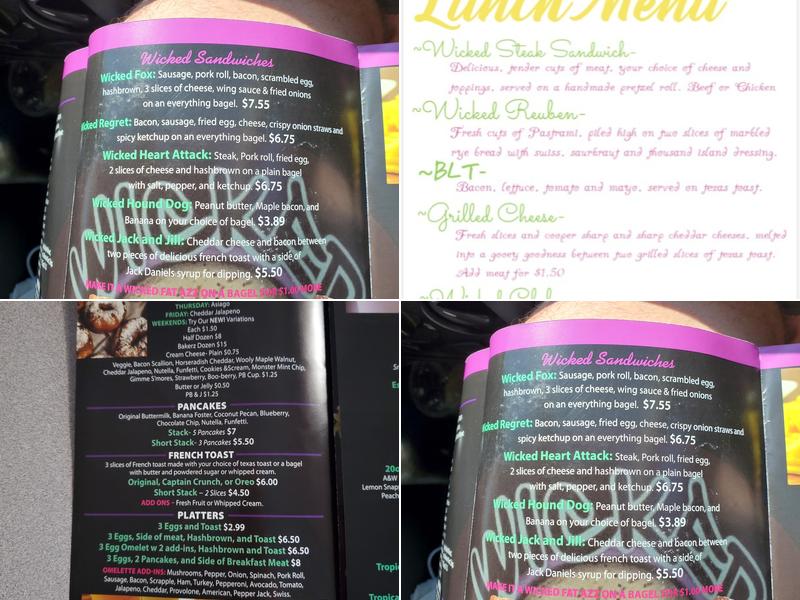 Wicked Sandwiches
Wicked Fox: Sausage, pork roll, bacon, scrambled egg,
hashbrown, 3 slices of cheese, wing sauce & fried onions
on an everything bagel. $7.55
Wicked Regret: Bacon, sausage, fried egg, cheese, crispy onion straws and
spicy ketchup on an everything bagel. $6.75
Wicked Heart Attack: Steak, Pork roll, fried egg,
2 slices of cheese and hashbrown on a plain bagel
with salt, pepper, and ketchup. $6.75
Wicked Hound Dog: Peanut butter, Maple bacon, and
Banana on your choice of bagel. $3.89
Wicked Jack and Jill: Cheddar cheese and bacon between
two pieces of delicious french toast with a side of
Jack Daniels syrup for dipping. $5.50
MAKE IT A WICKED FAT AZZ ON A BAGEL FOR $1.00 MORE
Lunch Menu
~Wicked Steak Sandwich-
Delicious, tender cuts of meat, your choice of cheese and
toppings, served on a handmade pretzel roll. Beef or Chicken
~Wicked Reuben-
Fresh cuts of Pastrami, piled high on two slices of marbled
rye bread with swiss, saurkraut and thousand island dressing.
~BLT-
Bacon, lettuce, tomato and mayo, served on texas toast.
~Grilled Cheese-
Fresh slices and cooper sharp and sharp cheddar cheeses, melted
into a gooey goodness between two grilled slices of texas toast.
Add meat for $1.50
THURSDAY: Asiago
FRIDAY: Cheddar Jalapeno
WEEKENDS: Try Our NEW! Variations
Each $1.50
Half Dozen $8
Bakerz Dozen $15
Cream Cheese- Plain $0.75
Veggie, Bacon Scallion, Horseradish Cheddar, Wooly Maple Walnut,
Cheddar Jalapeno, Nutella, Funfetti, Cookies &Scream, Monster Mint Chip,
Gimme S'mores, Strawberry, Boo-berry, PB Cup. $1.25
Butter or Jelly $0.50
PB & J $1.25
PANCAKES
Original Buttermilk, Banana Foster, Coconut Pecan, Blueberry,
Chocolate Chip, Nutella, Funfetti.
Stack- 5 Pancakes $7
Short Stack- 3 Pancakes $5.50
FRENCH TOAST
3 slices of French toast made with your choice of texas toast or a bagel
with butter and powdered sugar or whipped cream.
Original, Captain Crunch, or Oreo $6.00
Short Stack – 2 Slices $4.50
ADD ONS - Fresh Fruit or Whipped Cream.
PLATTERS
3 Eggs and Toast $2.99
3 Eggs, Side of meat, Hashbrown, and Toast $6.50
3 Egg Omelet w 2 add-ins, Hashbrown and Toast $6.50
3 Eggs, 2 Pancakes, and Side of Breakfast Meat $8
OMELETTE ADD-INS: Mushrooms, Pepper, Onion, Spinach, Pork Roll,
Sausage, Bacon, Scrapple, Ham, Turkey, Pepperoni, Avocado, Tomato,
Jalapeno, Cheddar, Provolone, American, Pepper Jack, Swiss.
20o
A&W
Lemon Snap
Peach
Tropic
Tropi
Wicked Sandwiches
Wicked Fox: Sausage, pork roll, bacon, scrambled egg,
hashbrown, 3 slices of cheese, wing sauce & fried onions
on an everything bagel. $7.55
Wicked Regret: Bacon, sausage, fried egg, cheese, crispy onion straws and
spicy ketchup on an everything bagel. $6.75
Wicked Heart Attack: Steak, Pork roll, fried egg,
2 slices of cheese and hashbrown on a plain bagel
with salt, pepper, and ketchup. $6.75
Wicked Hound Dog: Peanut butter, Maple bacon, and
Banana on your choice of bagel. $3.89
Wicked Jack and Jill: Cheddar cheese and bacon between
two pieces of delicious french toast with a side of
Jack Daniels syrup for dipping. $5.50
MAKE IT A WICKED FAT AZZ ON A BAGEL FOR $1.00 MORE